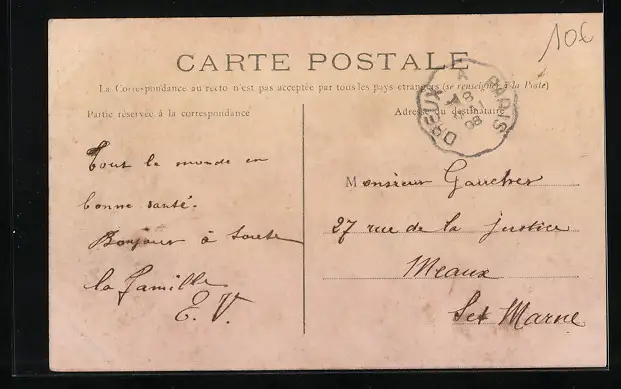 10€
CARTE POSTALE
La Correspondance au recto n'est pas acceptée par tous les pays étrangers (se renseigner à la Poste)
Partie réservée à la correspondance
Adresse du destinataire
DREUX A PARIS
8
08
Tout le monde en
bonne santé.
Bonjour à toute
la famille
E. V.
Monsieur Gaucher
27 rue de la justice
Meaux
Set Marne